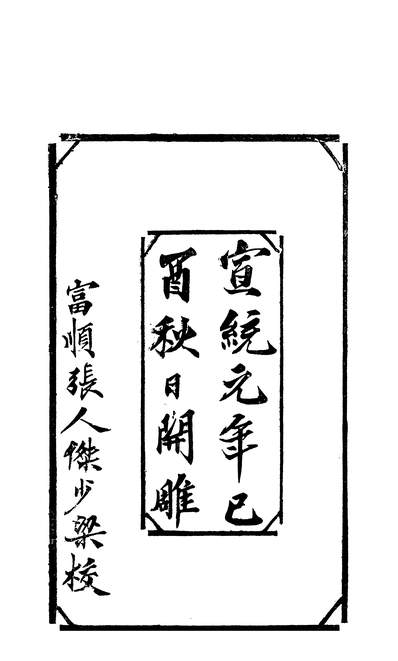 宣統元年己
酉秋日開雕
富順張人傑少梁校